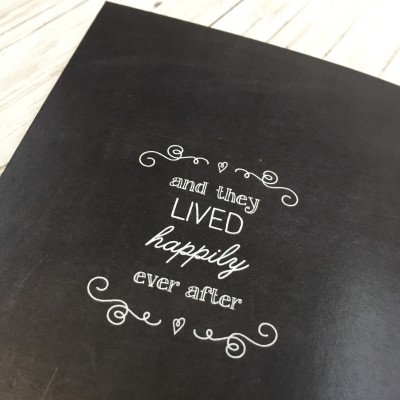 and they
LIVED
happily
ever after